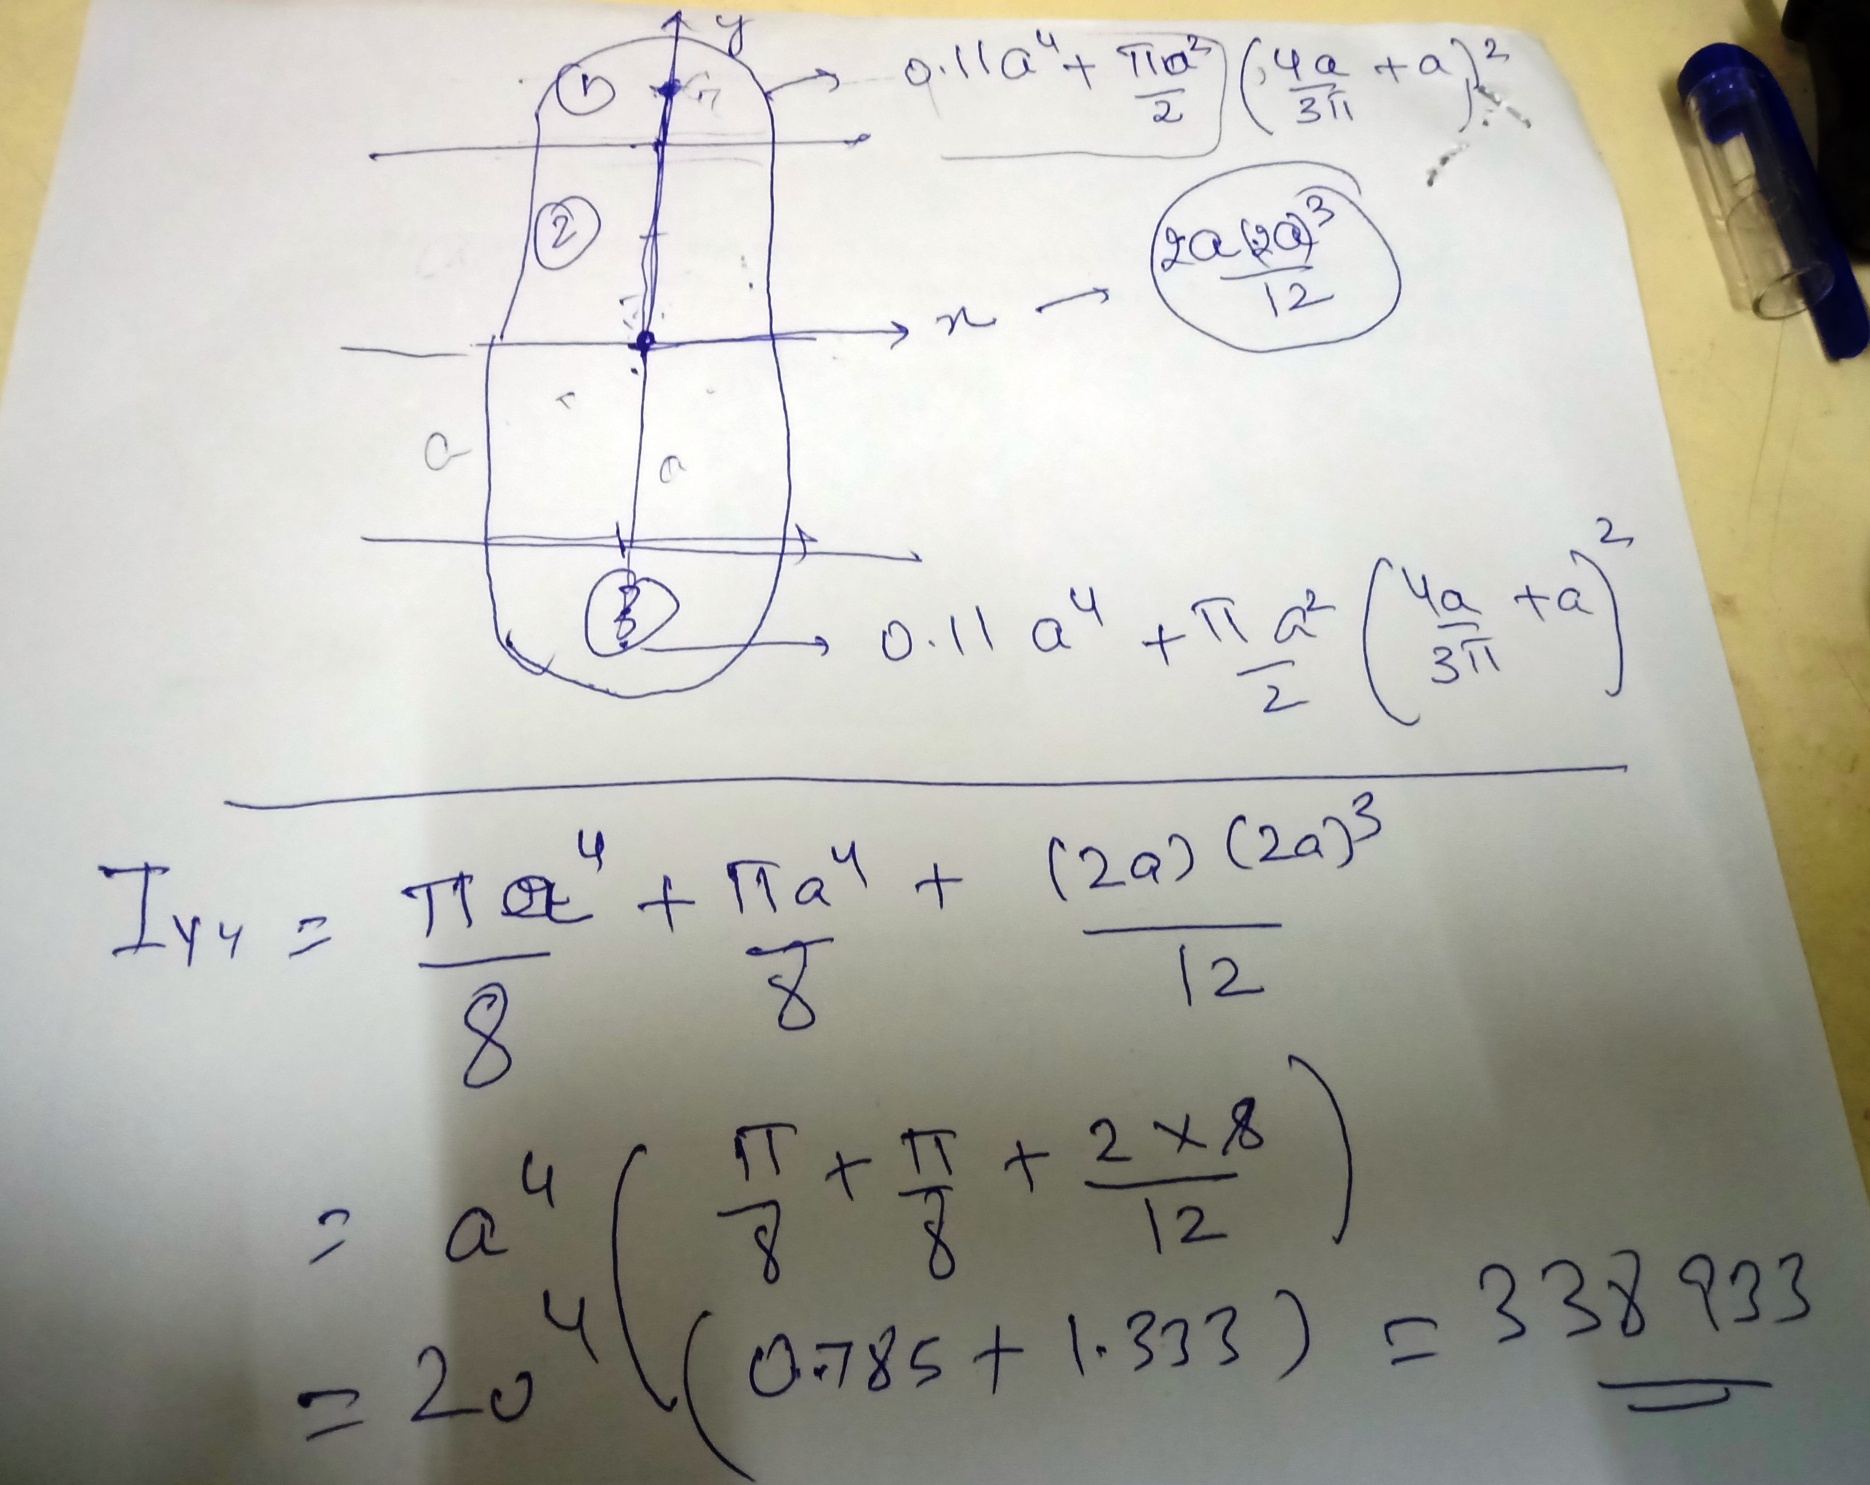 y
① → 0.11a⁴ + πa²/2 (4a/3π + a)²
②
x → 2a(2a)³/12
a a
③ → 0.11 a⁴ + π a²/2 (4a/3π + a)²
Iyy = πa⁴/8 + πa⁴/8 + (2a)(2a)³/12
= a⁴ (π/8 + π/8 + 2×8/12)
= 20⁴ (0.785 + 1.333) = 338933